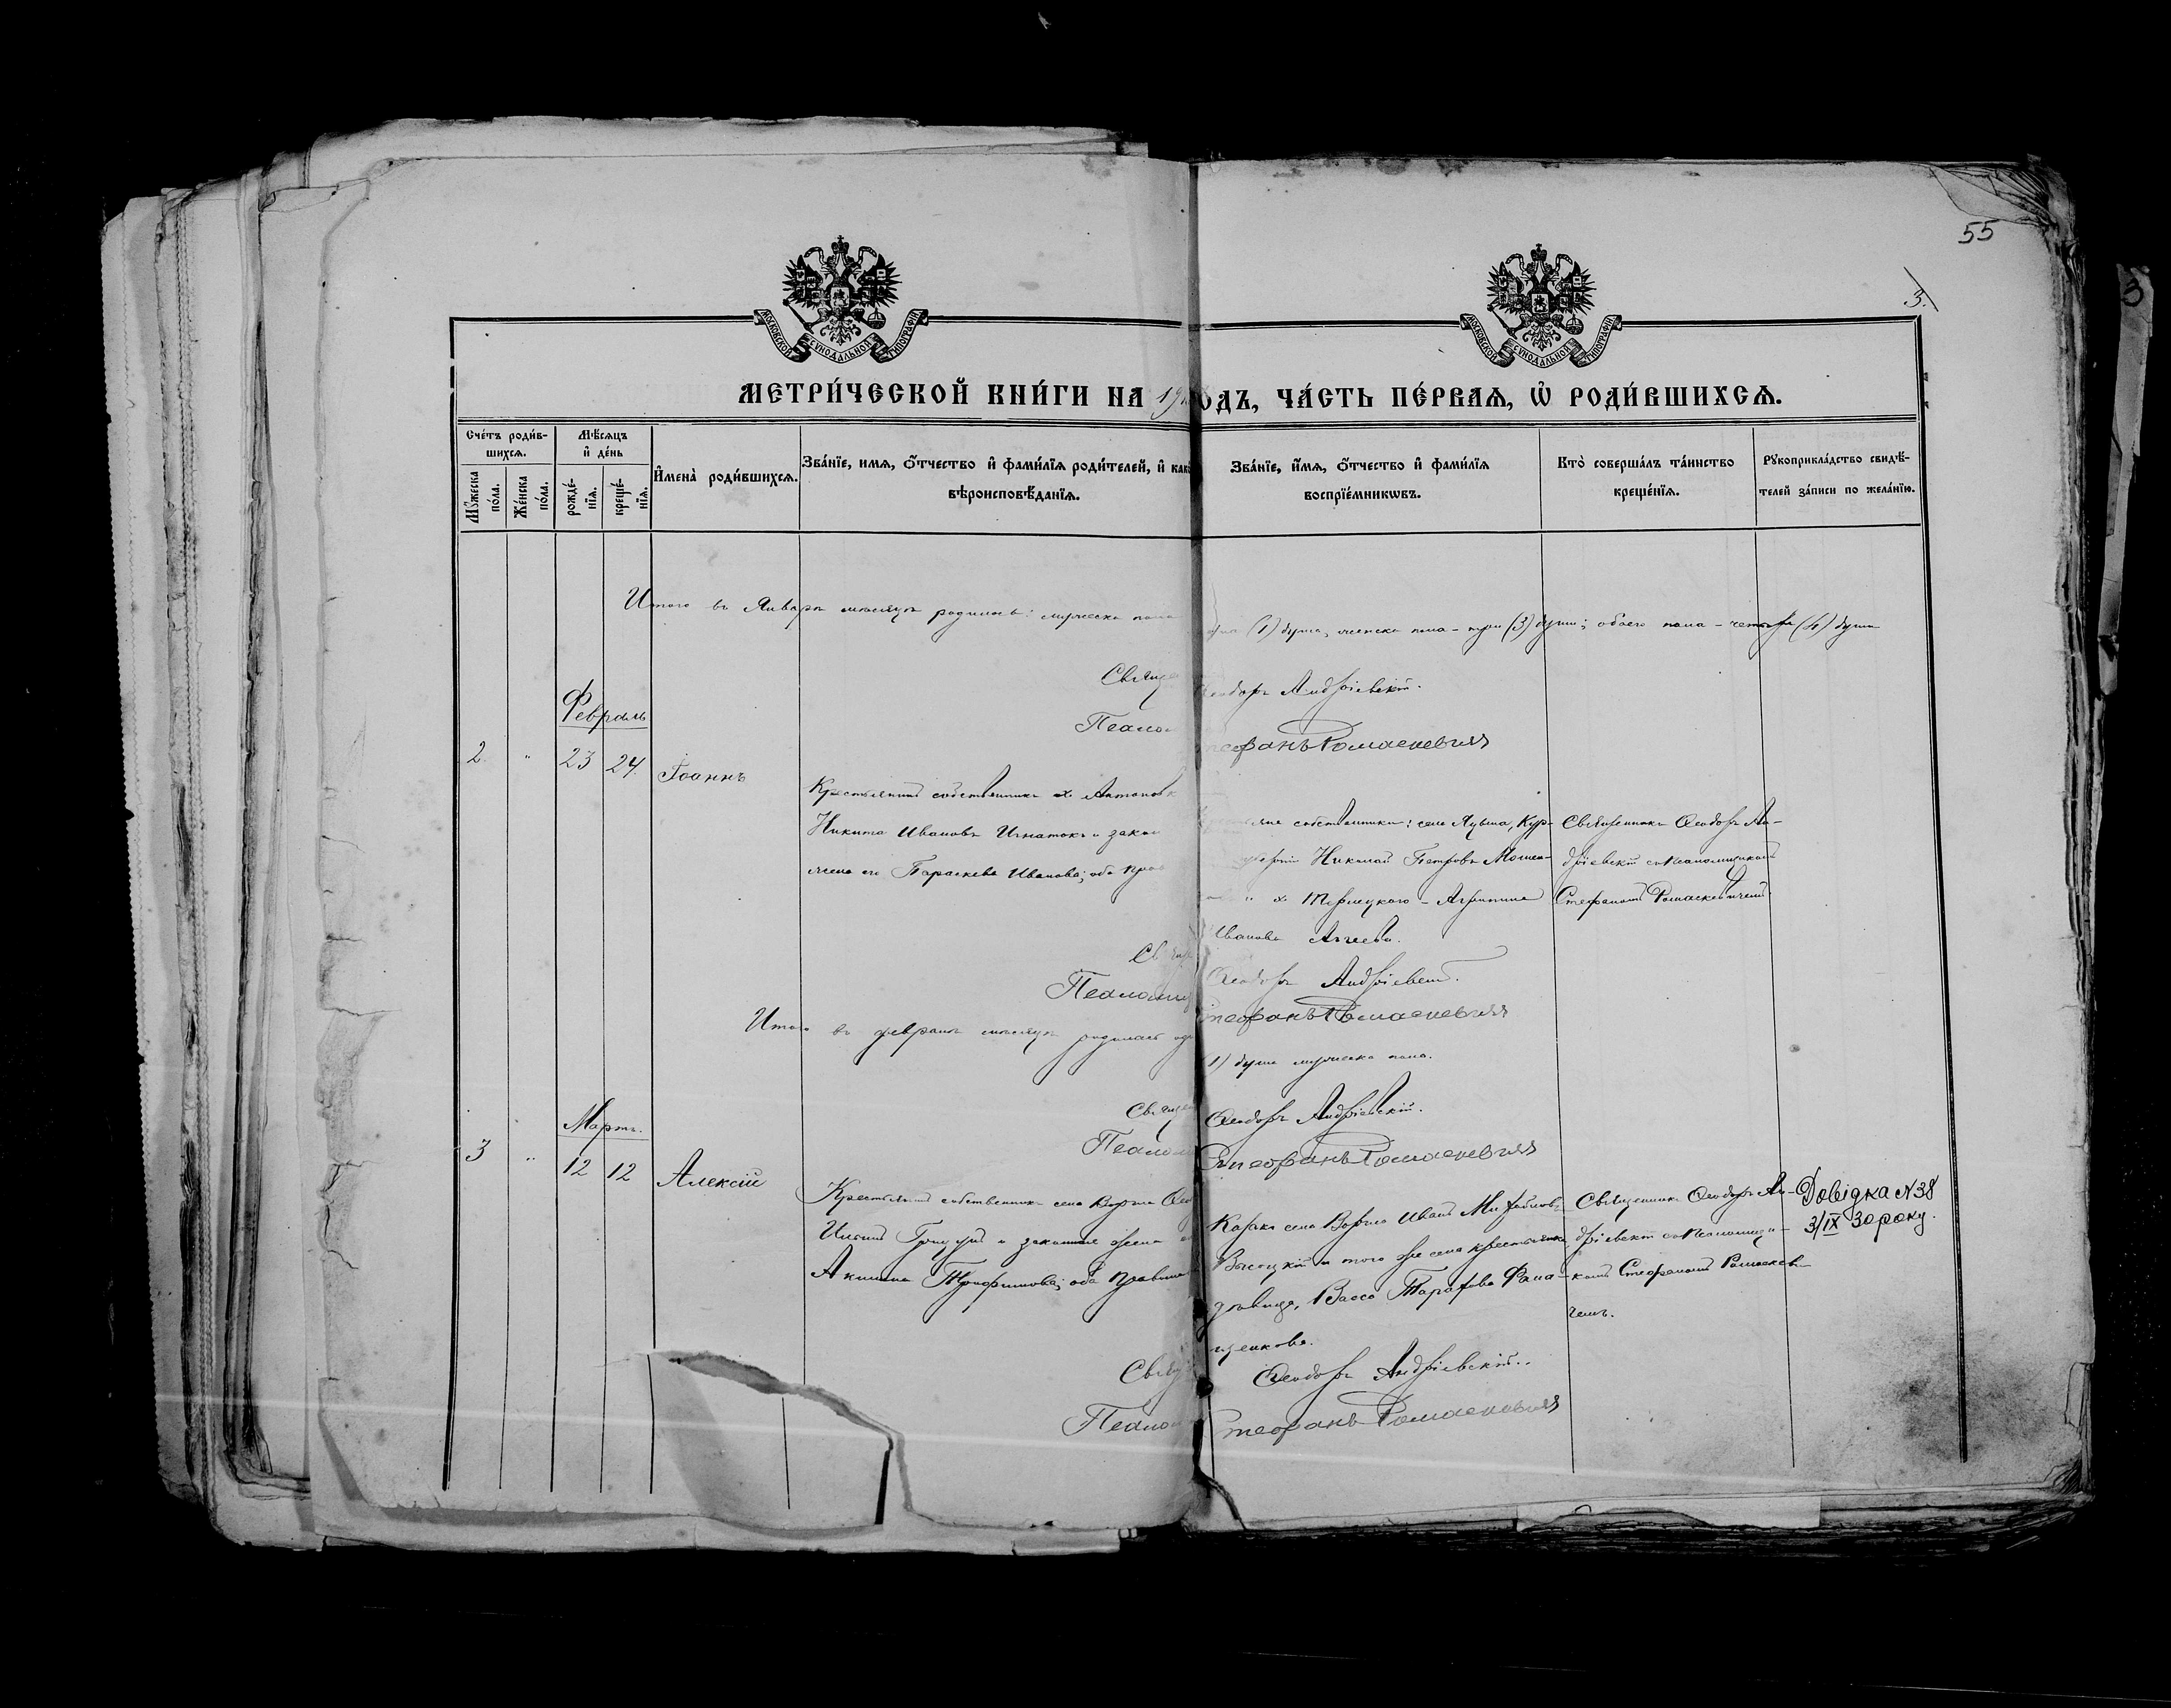 55
3.
МОСКОВСКОЙ СѴНОДАЛЬНОЙ ТИПОГРАФІИ
МОСКОВСКОЙ СѴНОДАЛЬНОЙ ТИПОГРАФІИ
МЕТРИ́ЧЕСКОЙ КНИ́ГИ НА 19 ОДЪ, ЧА́СТЬ ПЕ́РВАѦ, Ѡ҆ РОДИ́ВШИХСѦ.
Сче́тъ роди́в-
шихсѧ.
Мꙋ́жеска по́ла.
Же́нска по́ла.
Мѣ́сѧцъ
и҆ де́нь
рожде́-нїѧ.
креще́-нїѧ.
И҆мена̀ роди́вшихсѧ.
Зва́нїе, имѧ, ѻ҆́тчество и҆ фами́лїѧ роди́телей, и҆ како
вѣроисповѣ́данїѧ.
Зва́нїе, и҆́мѧ, ѻ҆́тчество и҆ фами́лїѧ
воспрїе́мникѡвъ.
Кто̀ соверша́лъ та́инство
креще́нїѧ.
Рꙋкоприкла́дство свидѣ́-
телей за́писи по жела́нїю.
Итого въ Январѣ мѣсяцѣ родилось: мужеска пола (1) душа, женска пола – три (3) души; обоего пола – четыре (4) души
Свяще Ѳеодоръ Андріевскій.
Псало Стефанъ Ромаскевичъ
Февраль
2. " 23 24. Іоаннъ
Крестьянинъ собственникъ х. Антоновк
Никита Ивановъ Игнатокъ и закон
жена его Параскева Иванова; оба прав
собственники: села Яцына, Кур-
губерніи Николай Петровъ Мошен-
х. Терлецкаго – Агрипина
Иванова Агеева.
Священникъ Ѳеодоръ Ан-
дріевскій съ псаломщикомъ
Стефаномъ Ромаскевичемъ
Свяще Ѳеодоръ Андріевскій.
Псаломщ Стефанъ Ромаскевичъ
Итого въ февралѣ мѣсяцѣ родилась од (1) душа мужеска пола.
Священ Ѳеодоръ Андріевскій.
Псалом Стефанъ Ромаскевичъ
Мартъ.
3 " 12 12 Алексій
Крестьянинъ собственникъ села Воргла Ѳео
Грицунъ и законная жена е
Акилина Трофимова; оба правосла
Казакъ села Воргла Иванъ Михайловъ
Высоцкій и того же села крестьянка
дѣвица, Васса Тарасова Фана-
щенкова.
Священникъ Ѳеодоръ Ан-
дріевскій съ псаломщи-
комъ Стефаномъ Ромаскеви-
чемъ.
Довідка №38
3/IX 30 року.
Свяще Ѳеодоръ Андріевскій.
Псалом Стефанъ Ромаскевичъ